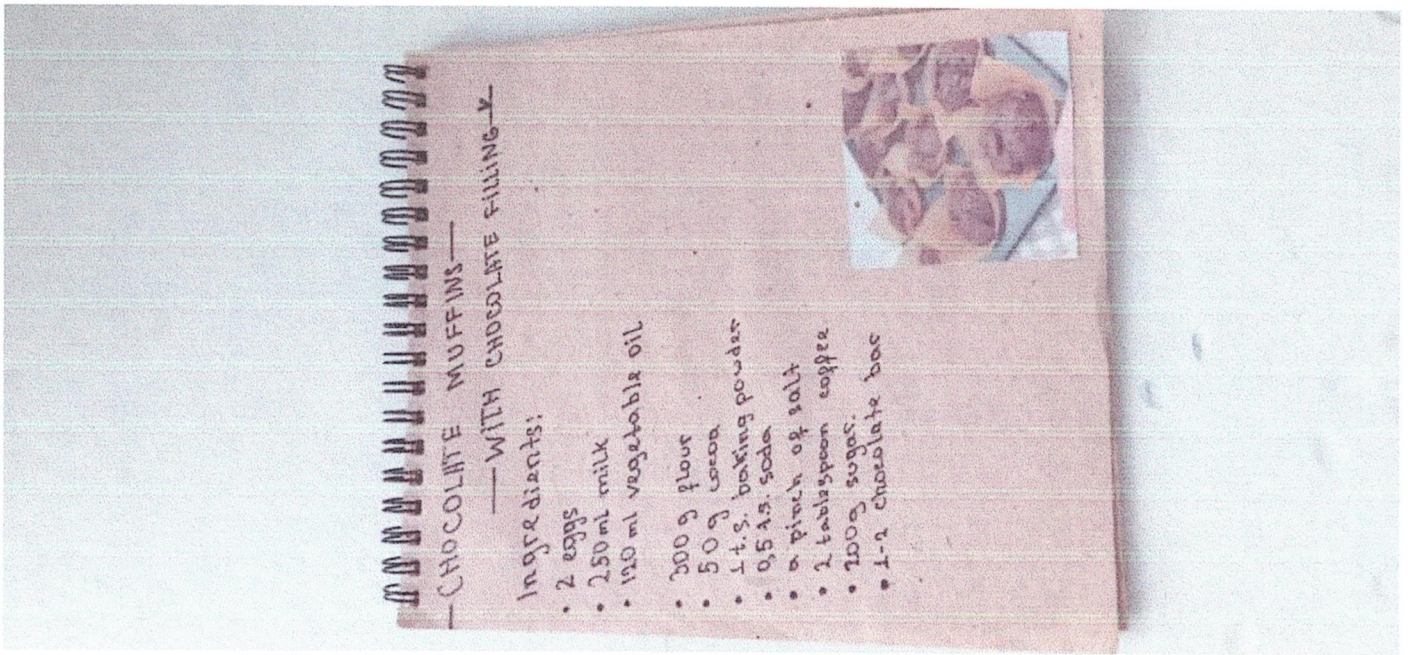 — CHOCOLATE MUFFINS —
— WITH CHOCOLATE FILLING —
Ingredients:
• 2 eggs
• 250 ml milk
• 120 ml vegetable oil
• 300 g flour
• 50 g cocoa
• 1 t.s. baking powder
• 0,5 t.s. soda
• a pinch of salt
• 2 tablespoon coffee
• 200g sugar.
• 1-2 chocolate bar